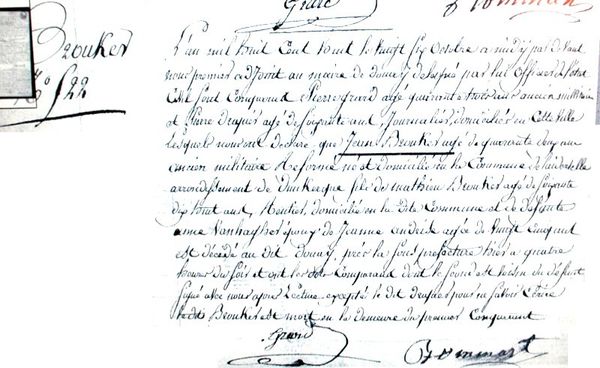 Grard
Bommart
Brouker
N.º 522
L'an mil huit Cent dont le Vingt Six Octobre a midy par devant
nous premier adjoint au maire de douay délégué par lui Officier de l'état
Civil sont Comparus Pierre grard agé quarante trois ans ancien militaire
et Pierre drapier agé de soixante ans Journalier, domiciliés en cette Ville
lesquels nous ont déclaré, que Jean Brouker agé de quarante
ancien militaire Réformé né et domicilié en la Commune de
arrondissement de dunkerque fils de mathieu Brouker agé de soixante
dix huit ans, Rentier, domicilié en la dite Commune et de défunte
anne Vanhaghe époux de Jeanne agée de Vingt Cinq ans
est décédé au dit Douay, près la sous préfecture hier a quatre
heures du soir et ont les dits Comparans dont le second est voisin du défunt
signé avec nous après Lecture excepté le dit drapier pour ne savoir Ecrire
le dit Brouker est mort en la demeure du premier Comparant
Grard
Bommart